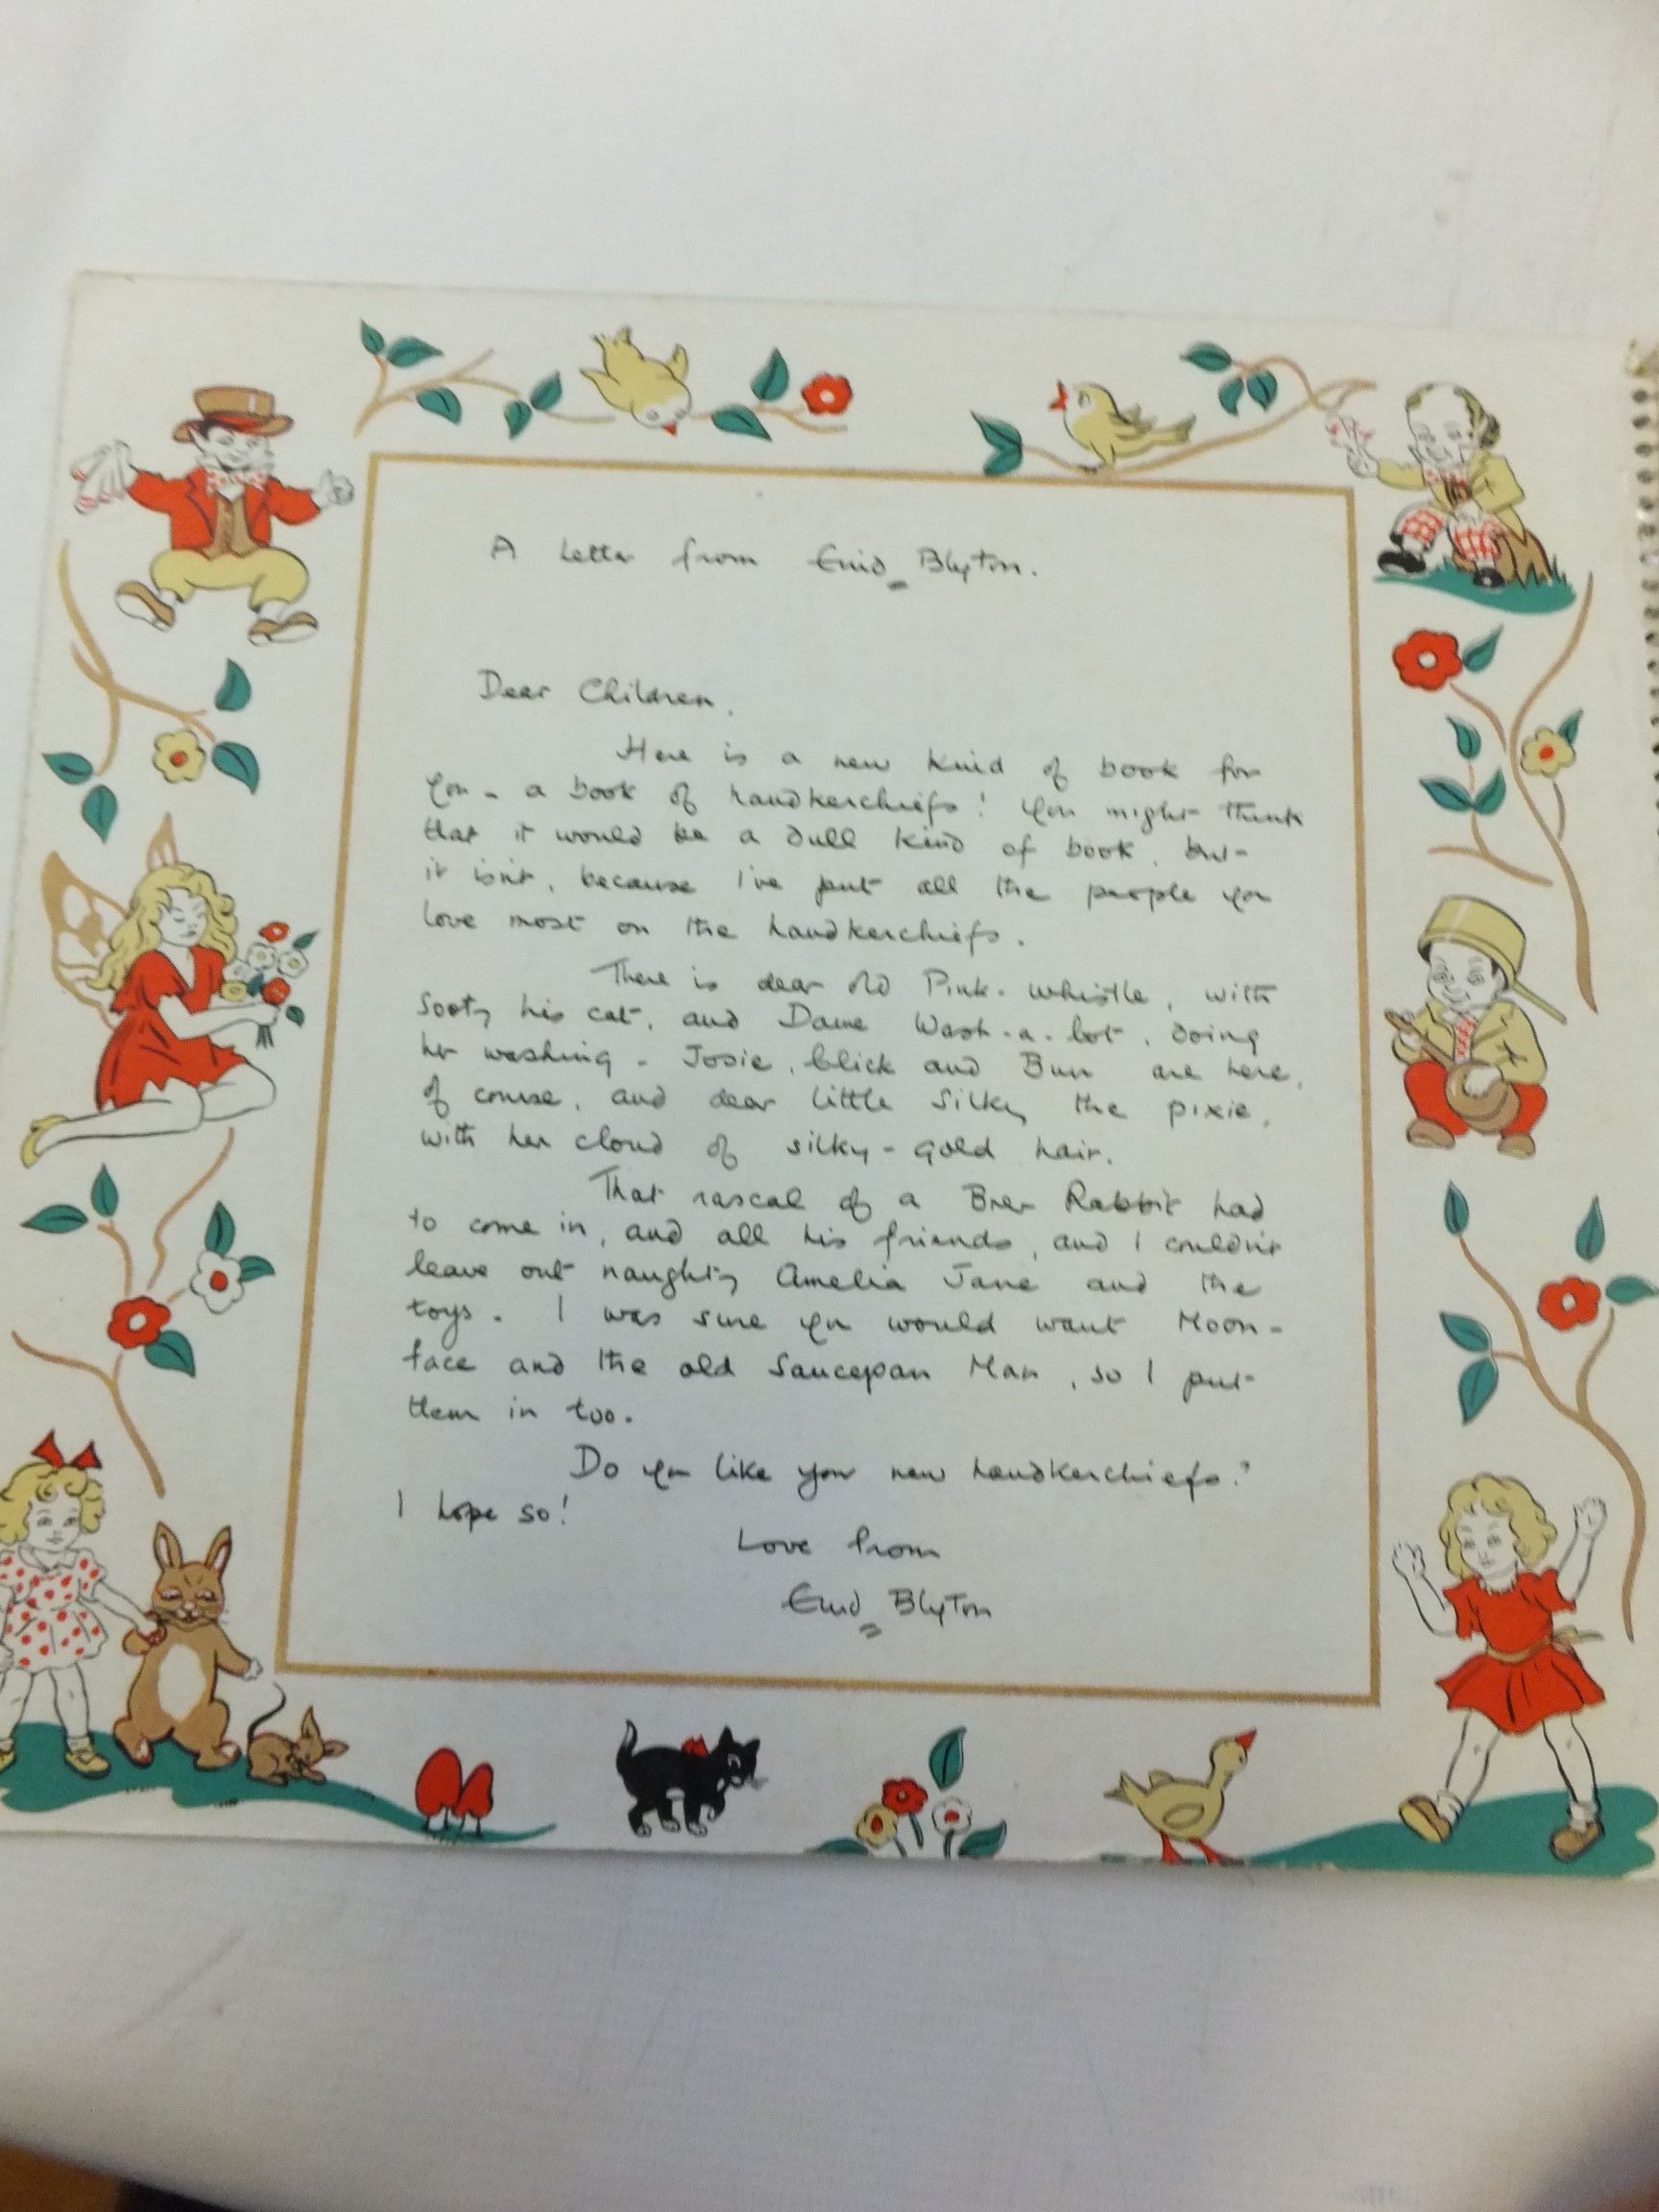 A Letter from Enid Blyton.
Dear Children,
Here is a new kind of book for
you - a book of handkerchiefs! You might think
that it would be a dull kind of book, but
it isn't, because I've put all the people you
love most on the handkerchiefs.
There is dear old Pink-Whistle, with
Sooty his cat, and Dame Wash-a-lot, doing
her washing - Josie, Click and Bun are here,
of course, and dear little Silky the pixie,
with her cloud of silky-gold hair.
That rascal of a Brer Rabbit had
to come in, and all his friends, and I couldn't
leave out naughty Amelia Jane and the
toys. I was sure you would want Moon-
face and the old Saucepan Man, so I put
them in too.
Do you like your new handkerchiefs?
I hope so!
Love from
Enid Blyton